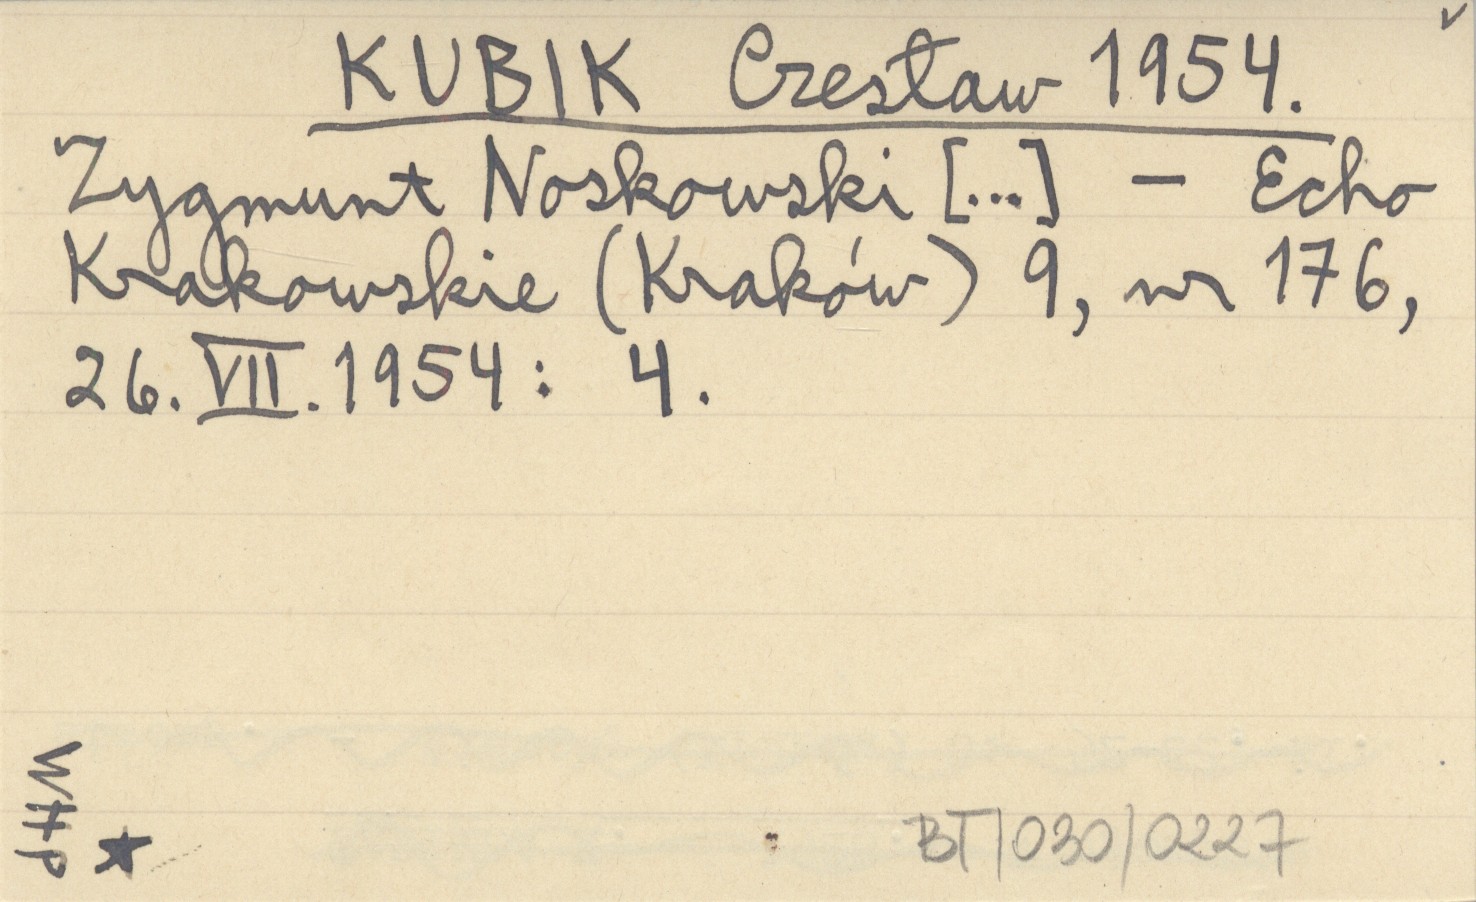 KUBIK Czesław 1954.
Zygmunt Noskowski [...] — Echo
Krakowskie (Kraków) 9, nr 176,
26. VII. 1954: 4.
WHP
BT/030/0227